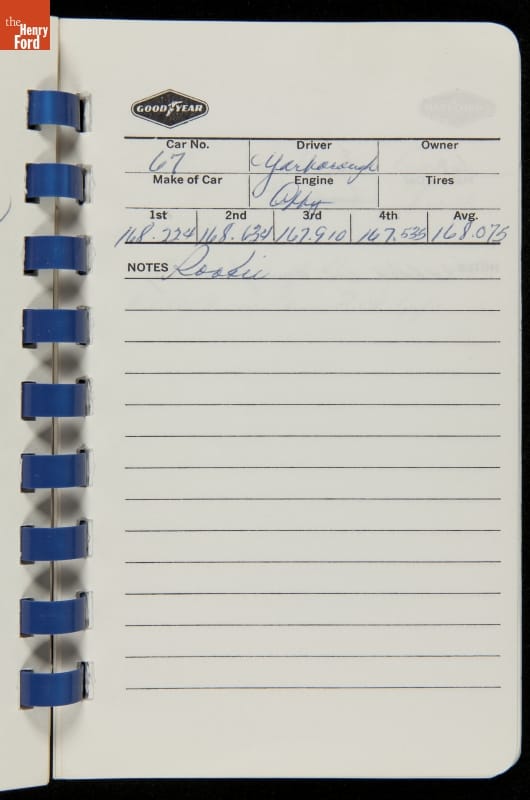 the
Henry
Ford
GOOD YEAR
Car No. Driver Owner
67 Yarborough
Make of Car Engine Tires
Offy
1st 2nd 3rd 4th Avg.
168.224 168.634 167.910 167.535 168.075
NOTES Rookie